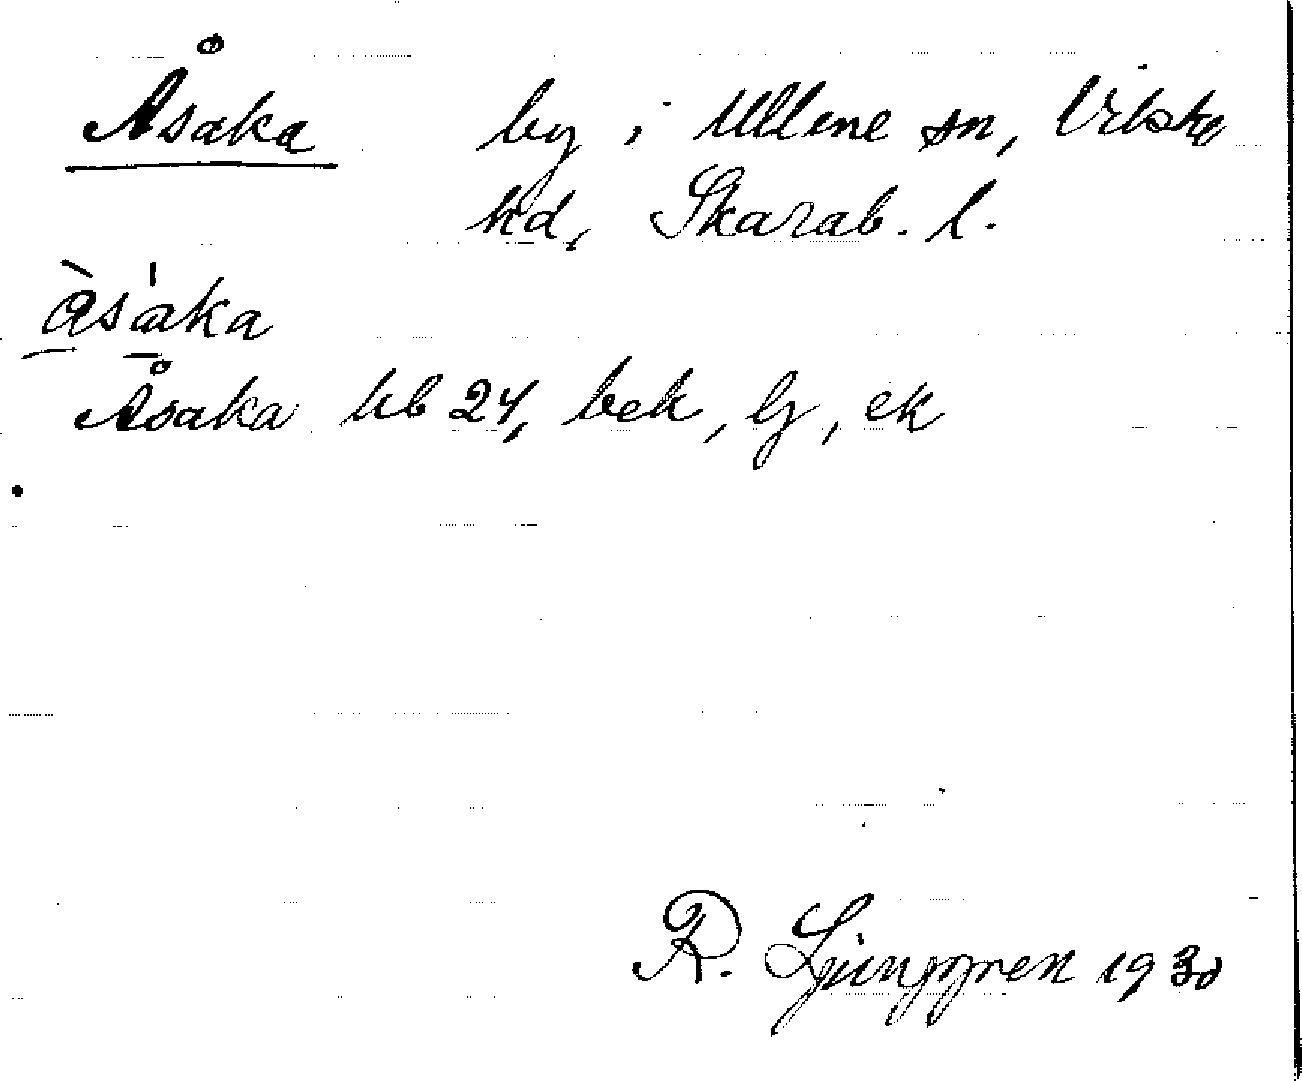 Åsaka by i Ullene sn, Vilske
hd, Skarab. l.
àsáka
Åsaka kb 24, bek, lj, ek
R. Ljunggren 1930